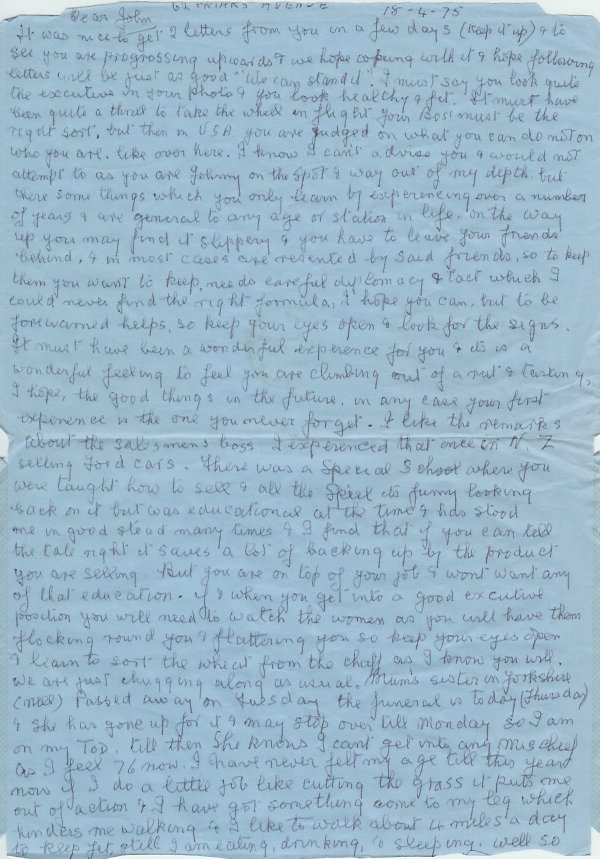 FRIARS AVENUE 18-4-75
Dear John
It was nice to get 2 letters from you in a few days (keep it up) & to
see you are progrossing upwards & we hope coping with it & hope following
letters will be just as good "We can stand it". I must say you look quite
the executive in your photo & you look healthy & fit. It must have
been quite a thrill to take the wheel in flight your Boss must be the
right sort, but then in USA you are judged on what you can do not on
who you are. like over here. I know I can't advise you & would not
attempt to as you are Johnny on the Spot & way out of my depth. but
there some things which you only learn by experiencing over a number
of years & are general to any age or station in life. on the way
up you may find it slippery & you have to leave your friends
behind, & in most cases are resented by said friends, so to keep
them you want to keep, needs careful diplomacy & tact which I
could never find the right formula, I hope you can, but to be
forewarned helps, so keep your eyes open & look for the signs.
It must have been a wonderful experence for you & its is a
wonderful feeling to feel you are climbing out of a rut & tasting,
I hope, the good things in the future. in any case your first
experence is the one you never forget. I like the remarks
about the salesmens boss I experienced that once in N.Z
selling Ford cars. There was a Special School where you
were taught how to sell & all the Speel its funny looking
back on it but was educational at the time & has stood
me in good stead many times & I find that if you can tell
the tale right it saves a lot of backing up by the product
you are selling. But you are on top of your job & wont want any
of that education. If & when you get into a good excutive
position you will need to watch the women as you will have them
flocking round you & fluttering you so keep your eyes open
& learn to sort the wheat from the chaff as I know you will.
We are just chugging along as usual. Mums sister in Yorkshire
(Nell) Passed away on Tuesday the funeral is today (Thursday)
& she has gone up for it & may stop over till Monday so I am
on my Tod, till then She knows I cant get into any mischief
as I feel 76 now. I have never felt my age till this year
now if I do a little job like cutting the grass it puts me
out of action & I have got something come to my leg which
hinders me walking & I like to walk about 4 miles a day
to keep fit still I am eating, drinking, & sleeping. well so